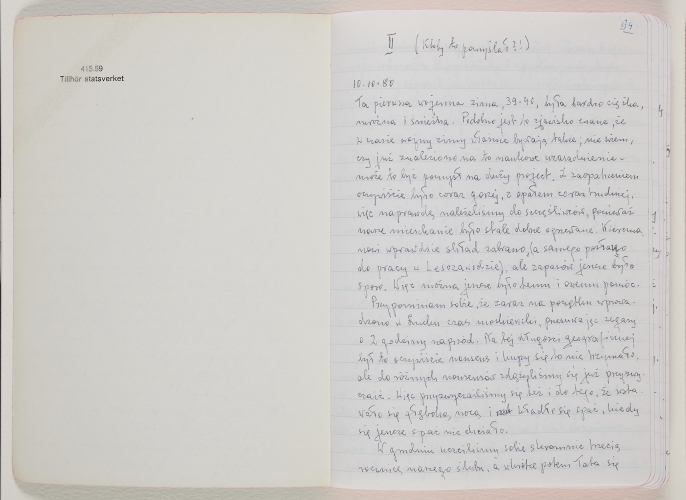 415.59
Tillhör statsverket
94
II (Któż by to pomyślał?!)
10.10.80
Ta pierwsza wojenna zima, 39-40, była bardzo ciężka,
mroźna i śnieżna. Podobno jest to zjawisko znane, że
w czasie wojny zimy właśnie bywają takie; nie wiem,
czy już znaleziono na to naukowe uzasadnienie -
może to być pomysł na duży project. Z zaopatrzeniem
oczywiście było coraz gorzej, z opałem coraz trudniej,
więc naprawdę należeliśmy do szczęśliwców, ponieważ
nasze mieszkanie było stale dobrze ogrzewane.
wprawdzie skład zabrano, (a samego
do pracy w Lesozawodzie), ale zapasów jeszcze było
sporo. Więc można jeszcze było temu i owemu pomóc.
Przypominam sobie, że zaraz na początku wprowa-
dzono w czas moskiewski, przesuwając zegary
o 2 godziny naprzód. Na tej długości geograficznej
był to oczywiście nonsens i kupy się to nie trzymało,
ale do różnych nonsensów zdążyliśmy się już przyzwy-
czaić. Więc przyzwyczailiśmy się też i do tego, że wsta-
wało się głęboką nocą i kładło się spać, kiedy
się jeszcze spać nie chciało.
W grudniu uczciliśmy sobie skromnie trzecią
rocznicę naszego ślubu, a wkrótce potem Tata się